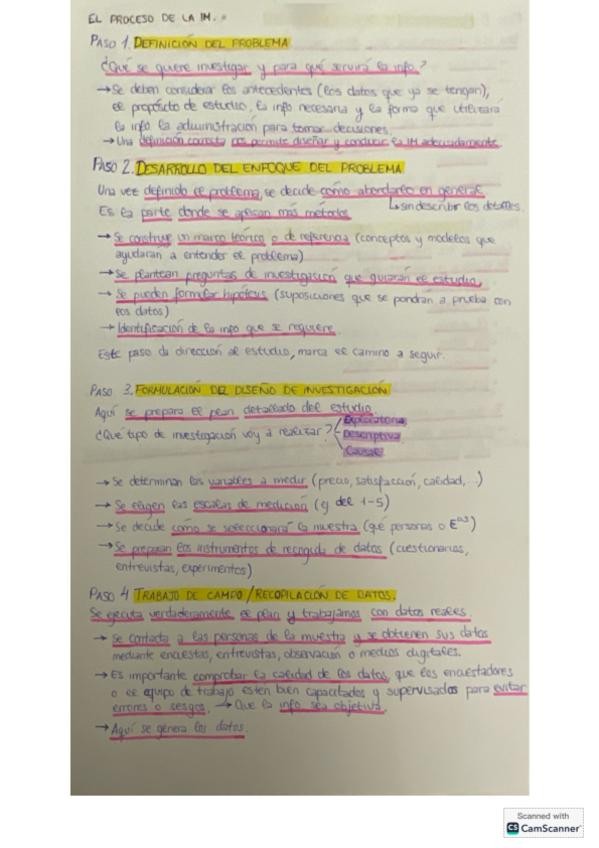 EL PROCESO DE LA IM.
PASO 1. DEFINICIÓN DEL PROBLEMA
¿Qué se quiere investigar y para qué servirá la info?
→ Se deben considerar los antecedentes (los datos que ya se tengan),
el propósito de estudio, la info necesaria y la forma que utilizará
la info la administración para tomar decisiones.
→ Una definición correcta nos permite diseñar y conducir la IM adecuadamente
PASO 2. DESARROLLO DEL ENFOQUE DEL PROBLEMA
Una vez definido el problema, se decide cómo abordarlo en general
↳ sin describir los detalles.
Es la parte donde se aplican más métodos
→ Se construye un marco teórico o de referencia (conceptos y modelos que
ayudaran a entender el problema)
→ Se plantean preguntas de investigación que guiarán el estudio
→ Se pueden formular hipótesis (suposiciones que se pondran a prueba con
los datos)
→ Identificación de la info que se requiere
Este paso da dirección al estudio, marca el camino a seguir.
PASO 3. FORMULACIÓN DEL DISEÑO DE INVESTIGACIÓN
Aquí se prepara el plan detallado del estudio
¿Qué tipo de investigación voy a realizar?
Exploratoria
Descriptiva
Causal
→ Se determinan las variables a medir (precio, satisfacción, calidad, ...)
→ Se eligen las escalas de medición (ej del 1-5)
→ Se decide cómo se seleccionará la muestra (qé personas o Eas)
→ Se preparan los instrumentos de recogida de datos (cuestionarios,
entrevistas, experimentos)
PASO 4 TRABAJO DE CAMPO / RECOPILACIÓN DE DATOS.
Se ejecuta verdaderamente el plan y trabajamos con datos reales.
→ Se contacta a las personas de la muestra y se obtienen sus datos
mediante encuestas, entrevistas, observación o medios digitales.
→ Es importante comprobar la calidad de los datos, que los encuestadores
o el equipo de trabajo esten bien capacitados y supervisados para evitar
errores o sesgos. → Que la info sea objetiva.
→ Aquí se genera los datos.
Scanned with
CS CamScanner